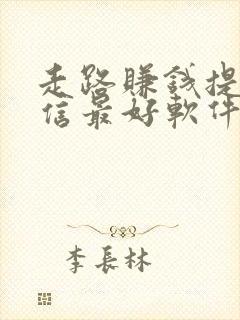 走路賺錢提
信最好軟件
李長林